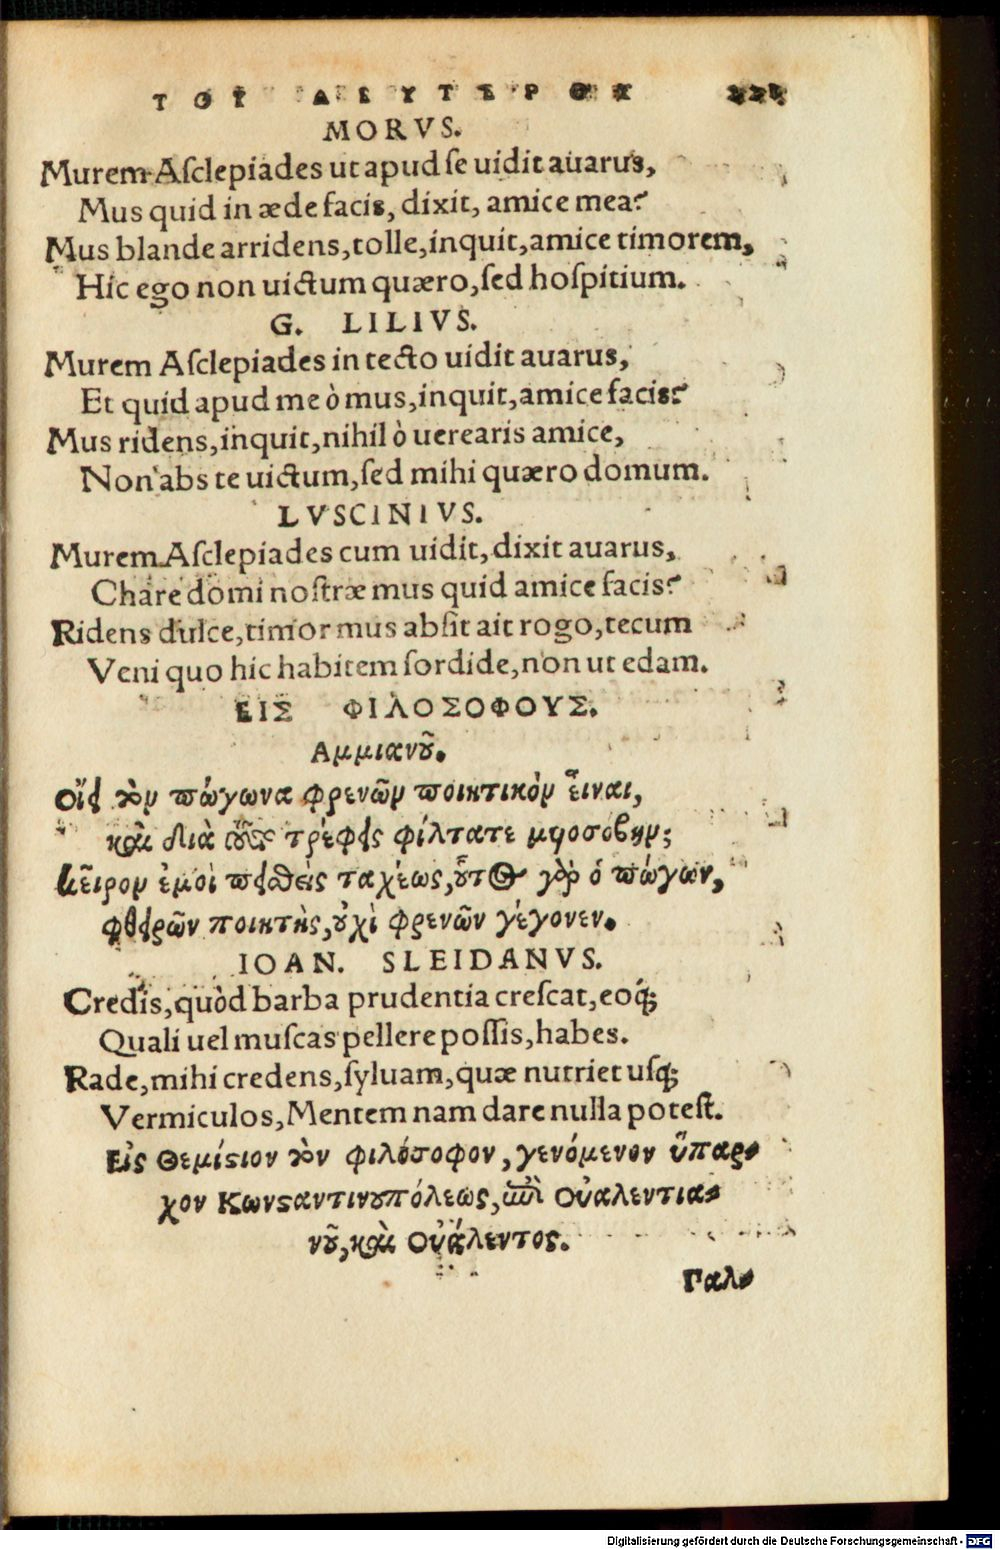 ΤΟΥ ΔΕΥΤΕΡΟΥ
MORVS.
Murem Aſclepiades ut apud ſe uidit auarus,
Mus quid in æde facis, dixit, amice mea?
Mus blande arridens, tolle, inquit, amice timorem,
Hic ego non uictum quæro, ſed hoſpitium.
G. LILIVS.
Murem Aſclepiades in tecto uidit auarus,
Et quid apud me ò mus, inquit, amice facis?
Mus ridens, inquit, nihil ò uerearis amice,
Non abs te uictum, ſed mihi quæro domum.
LVSCINIVS.
Murem Aſclepiades cum uidit, dixit auarus,
Chare domi noſtræ mus quid amice facis?
Ridens dulce, timor mus abſit ait rogo, tecum
Veni quo hic habitem ſordide, non ut edam.
ΕΙΣ ΦΙΛΟΣΟΦΟΥΣ.
Αμμιανοῦ.
Οἴει τὸν πώγωνα φρενῶν ποιητικὸν εἶναι,
καὶ διὰ τοῦτο τρέφεις φίλτατε μυοσόβην;
κεῖρον ἐμοὶ πεισθεὶς ταχέως, οὗτος γὰρ ὁ πώγων,
φθειρῶν ποιητὴς, οὐχὶ φρενῶν γέγονεν.
IOAN. SLEIDANVS.
Credis, quòd barba prudentia creſcat, eoq́;
Quali uel muſcas pellere poſſis, habes.
Rade, mihi credens, ſyluam, quæ nutriet uſq;
Vermiculos, Mentem nam dare nulla poteſt.
Εἰς Θεμίστιον τὸν φιλόσοφον, γενόμενον ὕπαρ-
χον Κωνσταντινουπόλεως, ἐπὶ Οὐαλεντια-
νοῦ, καὶ Οὐάλεντος.
Γαλ-
Digitalisierung gefördert durch die Deutsche Forschungsgemeinschaft - DFG